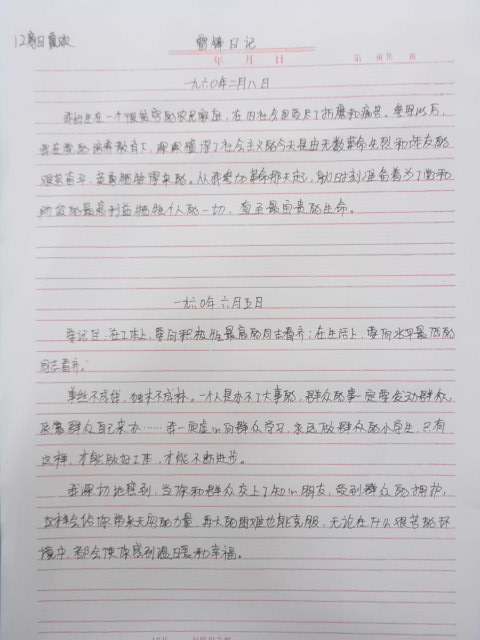 雷锋日记
年 月 日
第 页共 页
一九六〇年二月八日
我出生在一个很贫穷的农民家庭，在旧社会里受尽了折磨和痛苦。参军以后，
我在党的培养教育下，渐渐懂得了社会主义的今天是由无数革命先烈和战友的
艰苦奋斗、英勇牺牲得来的。从我参加革命那天起，就时刻准备着为了党和
阶级的最高利益牺牲个人的一切，直至最宝贵的生命。
一九六〇年六月五日
要记住：在工作上，要向积极性最高的同志看齐；在生活上，要向水平最低的
同志看齐。
单丝不成线，独木不成林。一个人是办不了大事的，群众的事一定要发动群众、
依靠群众自己来办……我一定虚心向群众学习，永远做群众的小学生，只有
这样，才能做好工作，才能不断进步。
我深切地感到，当你和群众交上了知心朋友，受到群众的拥护，
这样会给你带来无穷的力量，再大的困难也能克服，无论在什么艰苦的环
境中，都会使你感到温暖和幸福。